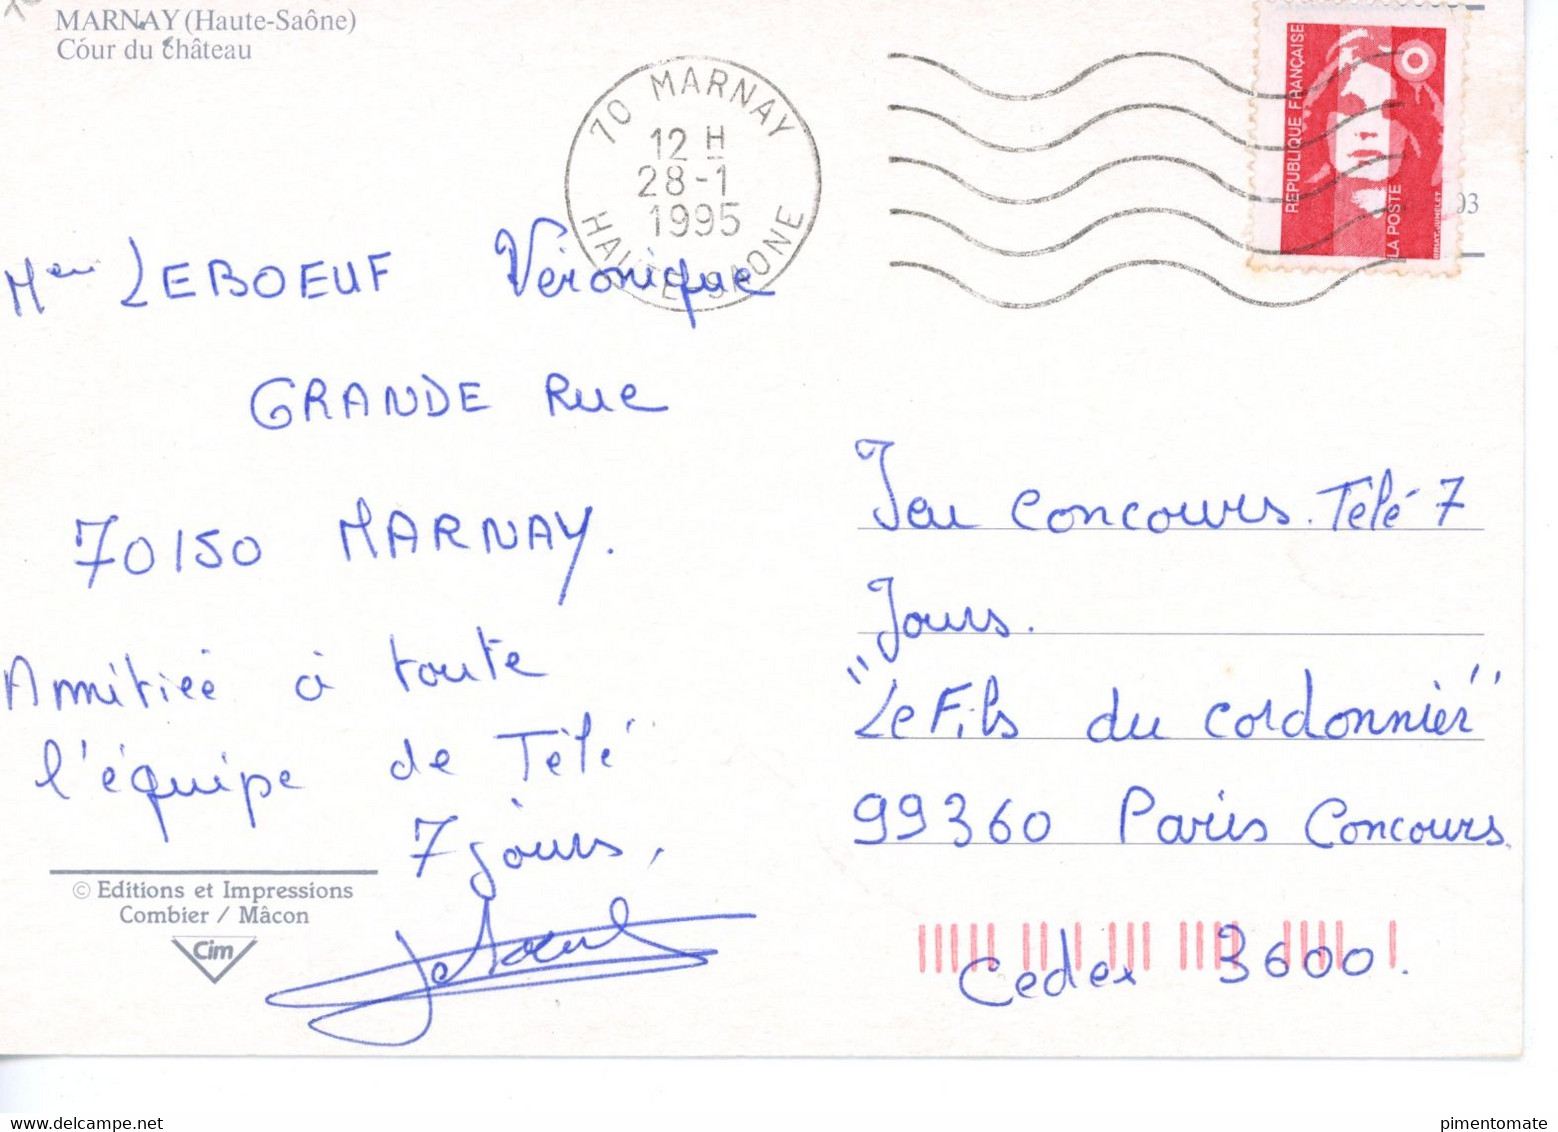 MARNAY (Haute-Saône)
Cour du château
70 MARNAY
12 H
28-1
1995
HAUTE-SAONE
REPUBLIQUE FRANÇAISE
LA POSTE
93
LEBOEUF Véronique
GRANDE Rue
70150 MARNAY.
Amitiée à toute
l'équipe de Télé
7 jours.
© Editions et Impressions
Combier / Mâcon
Cim
Jeu concours. Télé 7
Jours.
"Le Fils du cordonnier"
99360 Paris Concours
Cedex 3600.
pimentomate
www.delcampe.net